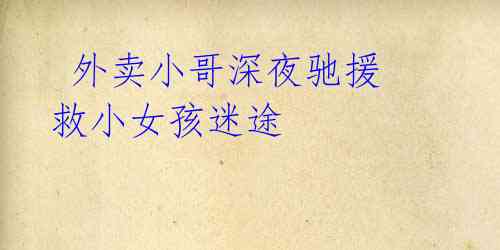 外卖小哥深夜驰援
救小女孩迷途